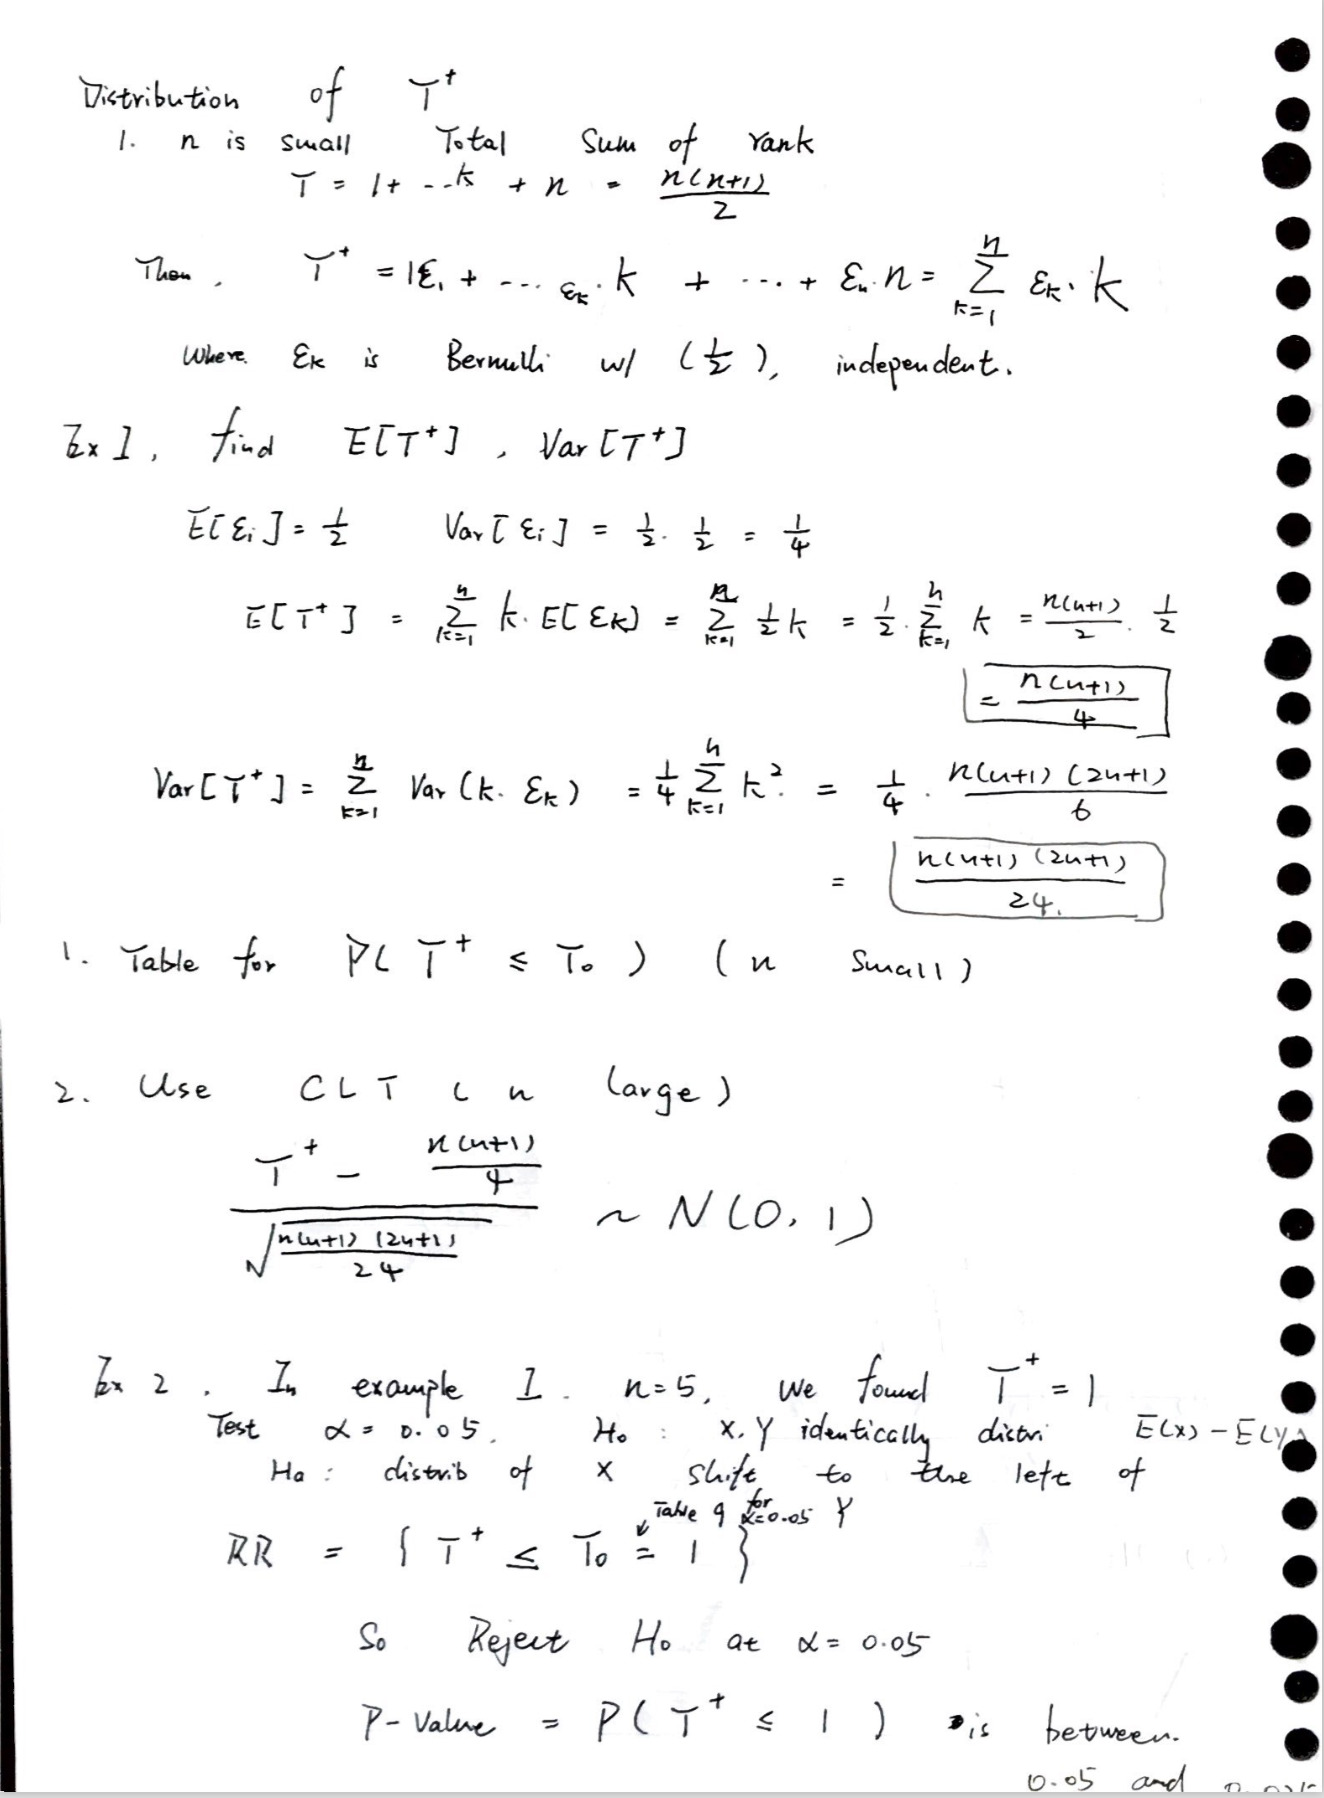 Distribution of T⁺
1. n is small Total Sum of rank
T = 1 + ... k + n = n(n+1)/2
Then, T⁺ = 1ε₁ + ... εₖ·k + ... + εₙ·n = Σₖ₌₁ⁿ εₖ·k
Where εₖ is Bernulli w/ (1/2), independent.
Ex 1, find E[T⁺], Var[T⁺]
E[εᵢ] = 1/2 Var[εᵢ] = 1/2 · 1/2 = 1/4
E[T⁺] = Σₖ₌₁ⁿ k·E[εₖ] = Σₖ₌₁ⁿ 1/2 k = 1/2 · Σₖ₌₁ⁿ k = n(n+1)/2 · 1/2
= n(n+1)/4
Var[T⁺] = Σₖ₌₁ⁿ Var(k·εₖ) = 1/4 Σₖ₌₁ⁿ k² = 1/4 · n(n+1)(2n+1)/6
= n(n+1)(2n+1)/24.
1. Table for P(T⁺ ≤ T₀) (n small)
2. Use CLT (n large)
(T⁺ - n(n+1)/4) / √(n(n+1)(2n+1)/24) ~ N(0, 1)
Ex 2. In example 1. n=5, we found T⁺ = 1
Test α = 0.05. H₀ : X, Y identically distri E(X) - E(Y)
Ha : distrib of X shift to the left of Y
Table 9 for α=0.05
RR = { T⁺ ≤ T₀ = 1 }
So Reject H₀ at α = 0.05
P-value = P(T⁺ ≤ 1) is between.
0.05 and